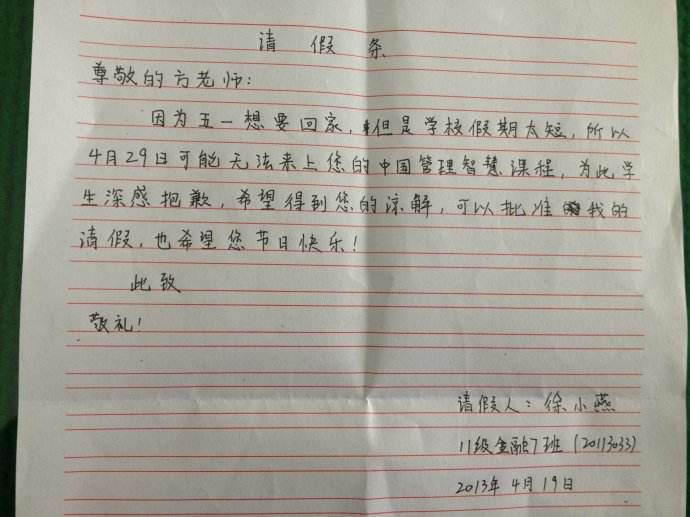 请假条
尊敬的方老师:
因为五一想要回家，但是学校假期太短，所以
4月29日可能无法来上您的中国管理智慧课程，为此学
生深感抱歉，希望得到您的谅解，可以批准我的
请假，也希望您节日快乐!
此致
敬礼!
请假人: 徐小燕
11级金融7班(20113033)
2013年4月19日